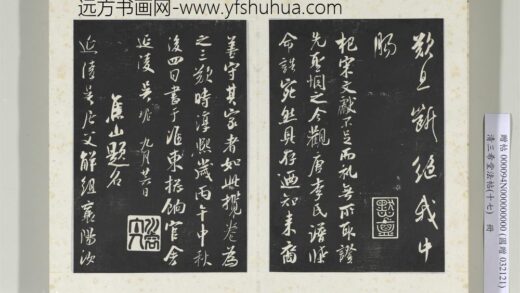 远方书画网- www.yfshuhua.com
歎且斷絕我中
腸
杞宋文獻不足而禮無所取證
先聖憫之今觀唐李氏譜牒
命誥宛然具存迺知來裔
善守其家者如此攬卷為
之三歎時淳熙歲丙午中秋
後四日書于淮東揔餉官舍
延陵吳琚 九月廿六日
焦山題名
延陵吳居父解組襄陽汝
贈帖 000094N000000000 (國贈 032121)
清三希堂法帖(十七) 冊